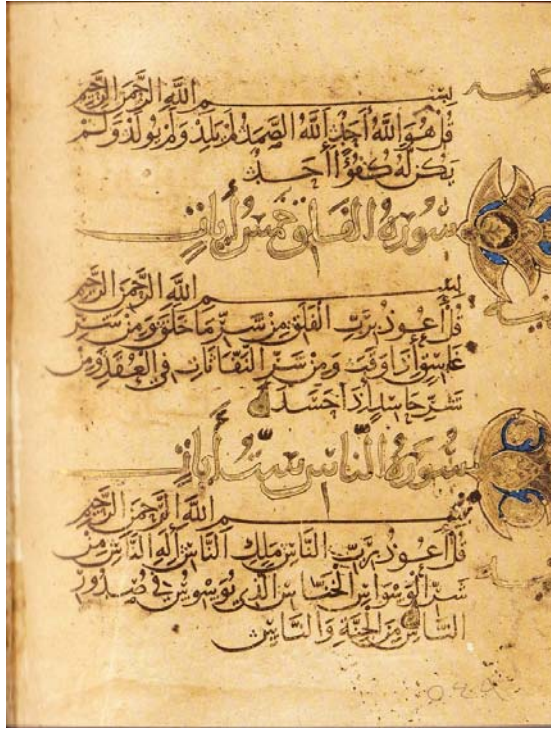 بِسْمِ اللَّهِ الرَّحْمَنِ الرَّحِيمِ
قُلْ هُوَ اللَّهُ أَحَدٌ اللَّهُ الصَّمَدُ لَمْ يَلِدْ وَلَمْ يُولَدْ وَلَمْ
يَكُنْ لَهُ كُفُؤًا أَحَدٌ
سُورَةُ الْفَلَقِ خَمْسُ أَيَاتٍ
بِسْمِ اللَّهِ الرَّحْمَنِ الرَّحِيمِ
قُلْ أَعُوذُ بِرَبِّ الْفَلَقِ مِنْ شَرِّ مَا خَلَقَ وَمِنْ شَرِّ
غَاسِقٍ إِذَا وَقَبَ وَمِنْ شَرِّ النَّفَّاثَاتِ فِي الْعُقَدِ وَمِنْ
شَرِّ حَاسِدٍ إِذَا حَسَدَ
سُورَةُ النَّاسِ سِتُّ أَيَاتٍ
بِسْمِ اللَّهِ الرَّحْمَنِ الرَّحِيمِ
قُلْ أَعُوذُ بِرَبِّ النَّاسِ مَلِكِ النَّاسِ إِلَهِ النَّاسِ مِنْ
شَرِّ الْوَسْوَاسِ الْخَنَّاسِ الَّذِي يُوَسْوِسُ فِي صُدُورِ
النَّاسِ مِنَ الْجِنَّةِ وَالنَّاسِ